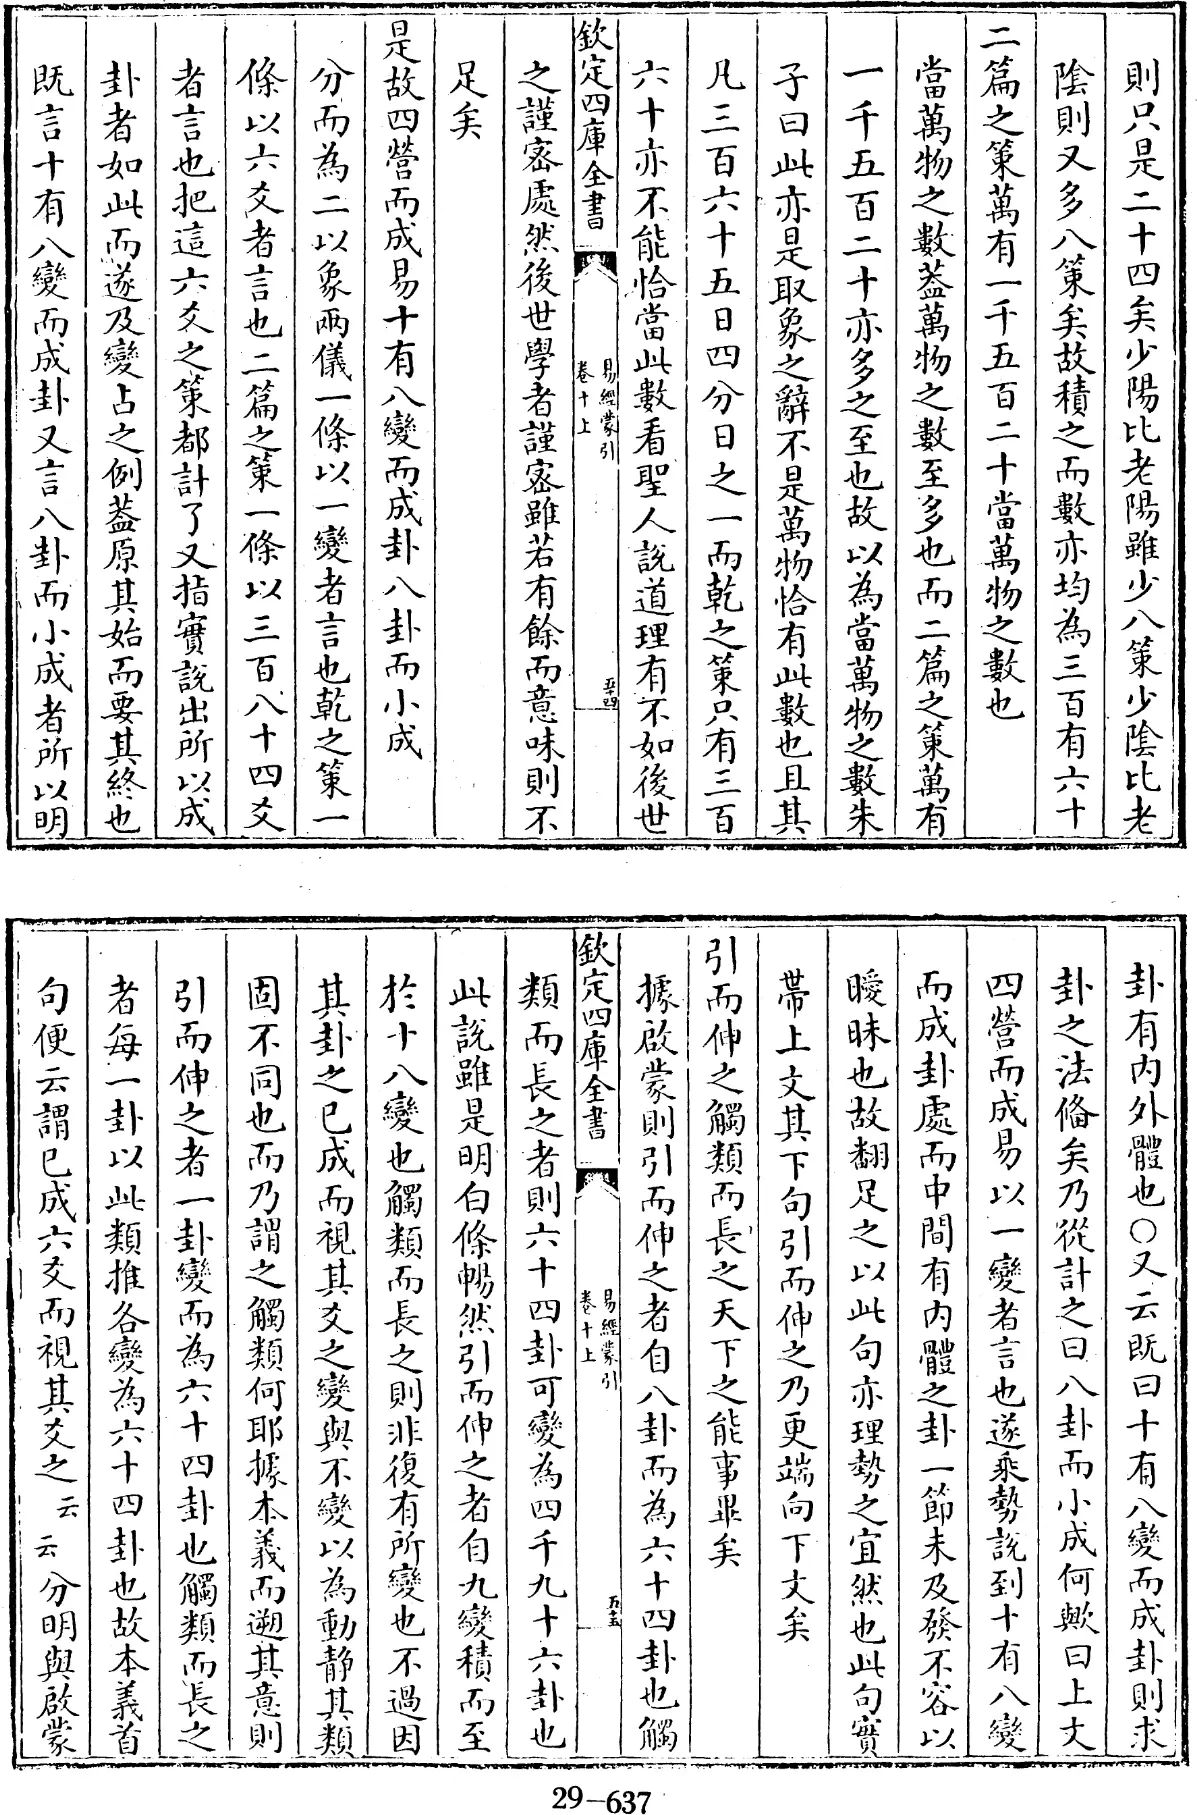 則只是二十四矣少陽比老陽雖少八策少陰比老
陰則又多八策矣故積之而數亦均為三百有六十
二篇之策萬有一千五百二十當萬物之數也
當萬物之數蓋萬物之數至多也而二篇之策萬有
一千五百二十亦多之至也故以為當萬物之數朱
子曰此亦是取象之辭不是萬物恰有此數也且其
凡三百六十五日四分日之一而乾之策只有三百
六十亦不能恰當此數看聖人說道理有不如後世
欽定四庫全書
易經蒙引
卷十上
五十四
之謹密處然後世學者謹密雖若有餘而意味則不
足矣
是故四營而成易十有八變而成卦八卦而小成
分而為二以象兩儀一條以一變者言也乾之策一
條以六爻者言也二篇之策一條以三百八十四爻
者言也把這六爻之策都計了又指實說出所以成
卦者如此而遂及變占之例蓋原其始而要其終也
既言十有八變而成卦又言八卦而小成者所以明
卦有內外體也○又云既曰十有八變而成卦則求
卦之法備矣乃從計之曰八卦而小成何歟曰上文
四營而成易以一變者言也遂乘勢說到十有八變
而成卦處而中間有內體之卦一節未及發不容以
曖昧也故翻足之以此句亦理勢之宜然也此句實
帶上文其下句引而伸之乃更端向下文矣
引而伸之觸類而長之天下之能事畢矣
據啟蒙則引而伸之者自八卦而為六十四卦也觸
欽定四庫全書
易經蒙引
卷十上
五十五
類而長之者則六十四卦可變為四千九十六卦也
此說雖是明白條暢然引而伸之者自九變積而至
於十八變也觸類而長之則非復有所變也不過因
其卦之已成而視其爻之變與不變以為動靜其類
固不同也而乃謂之觸類何耶據本義而遡其意則
引而伸之者一卦變而為六十四卦也觸類而長之
者每一卦以此類推各變為六十四卦也故本義首
句便云謂已成六爻而視其爻之云云分明與啟蒙
29-637